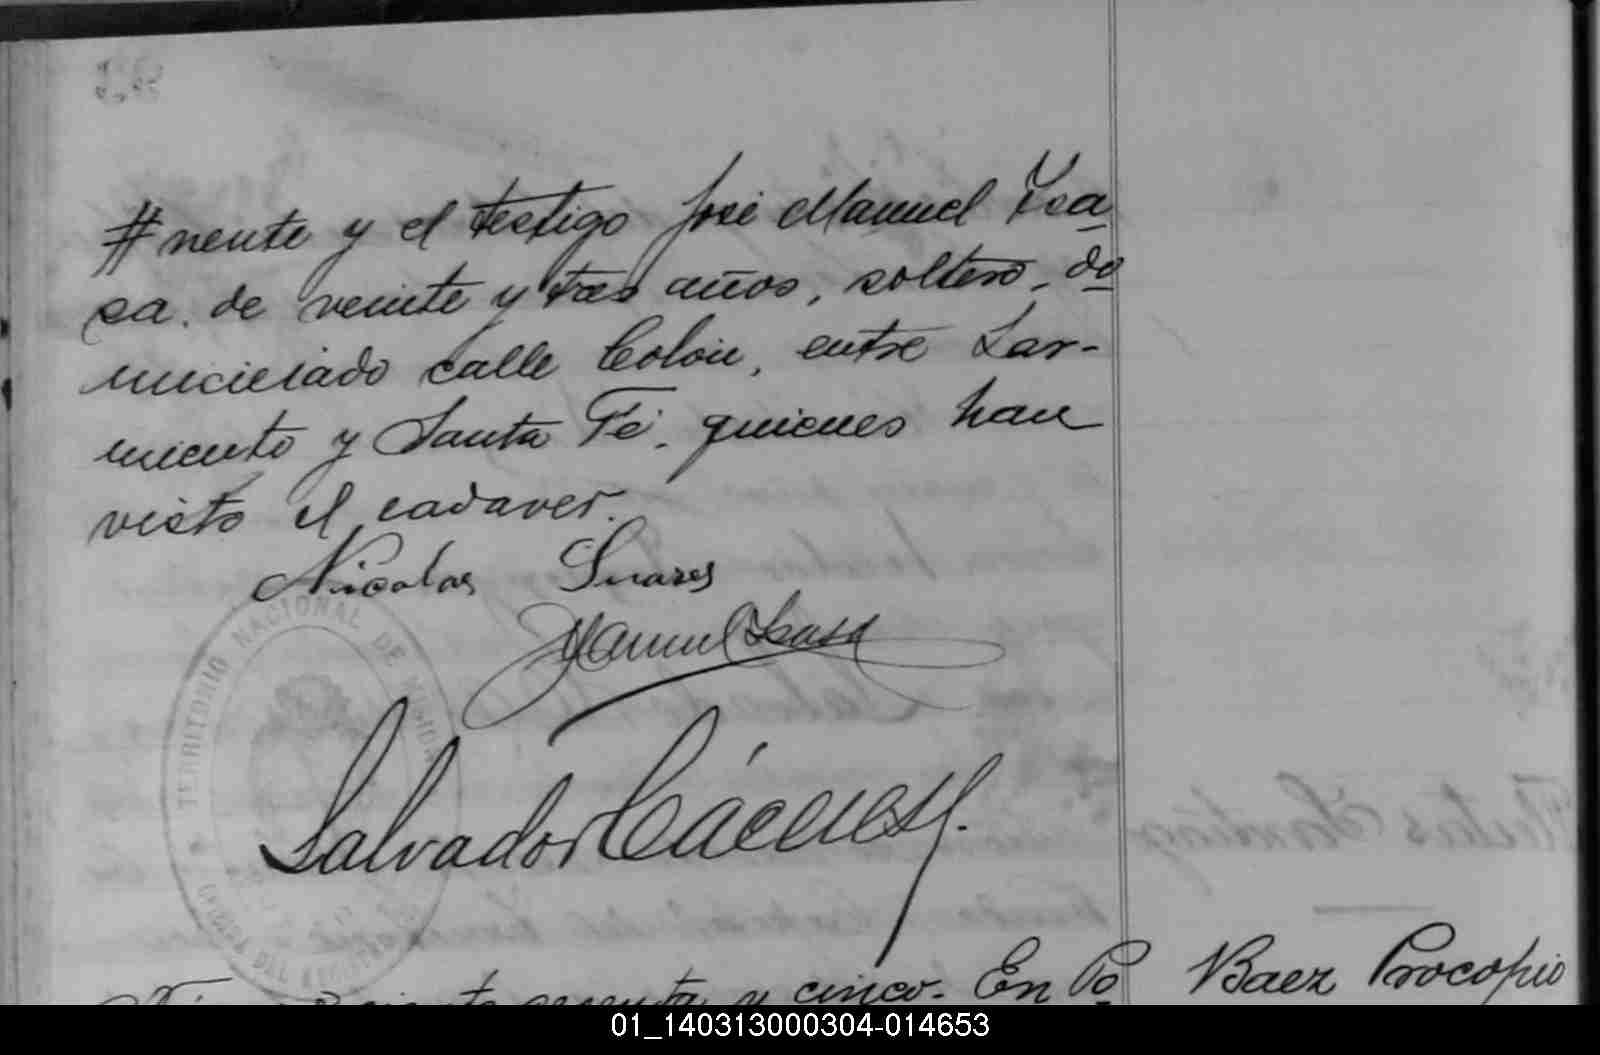 # nente y el testigo José Manuel Ysa
sa. de veinte y tres años, soltero, do
miciliado calle Colon, entre Sar-
miento y Santa Fé. quienes han
visto el cadaver.
Nicolas Suares
Manuel Isasa
Salvador Cáceres
TERRITORIO NACIONAL DE MISIONES
OFICINA DEL REGISTRO
y cinco. En Po
Baez Procopio
01_140313000304-014653